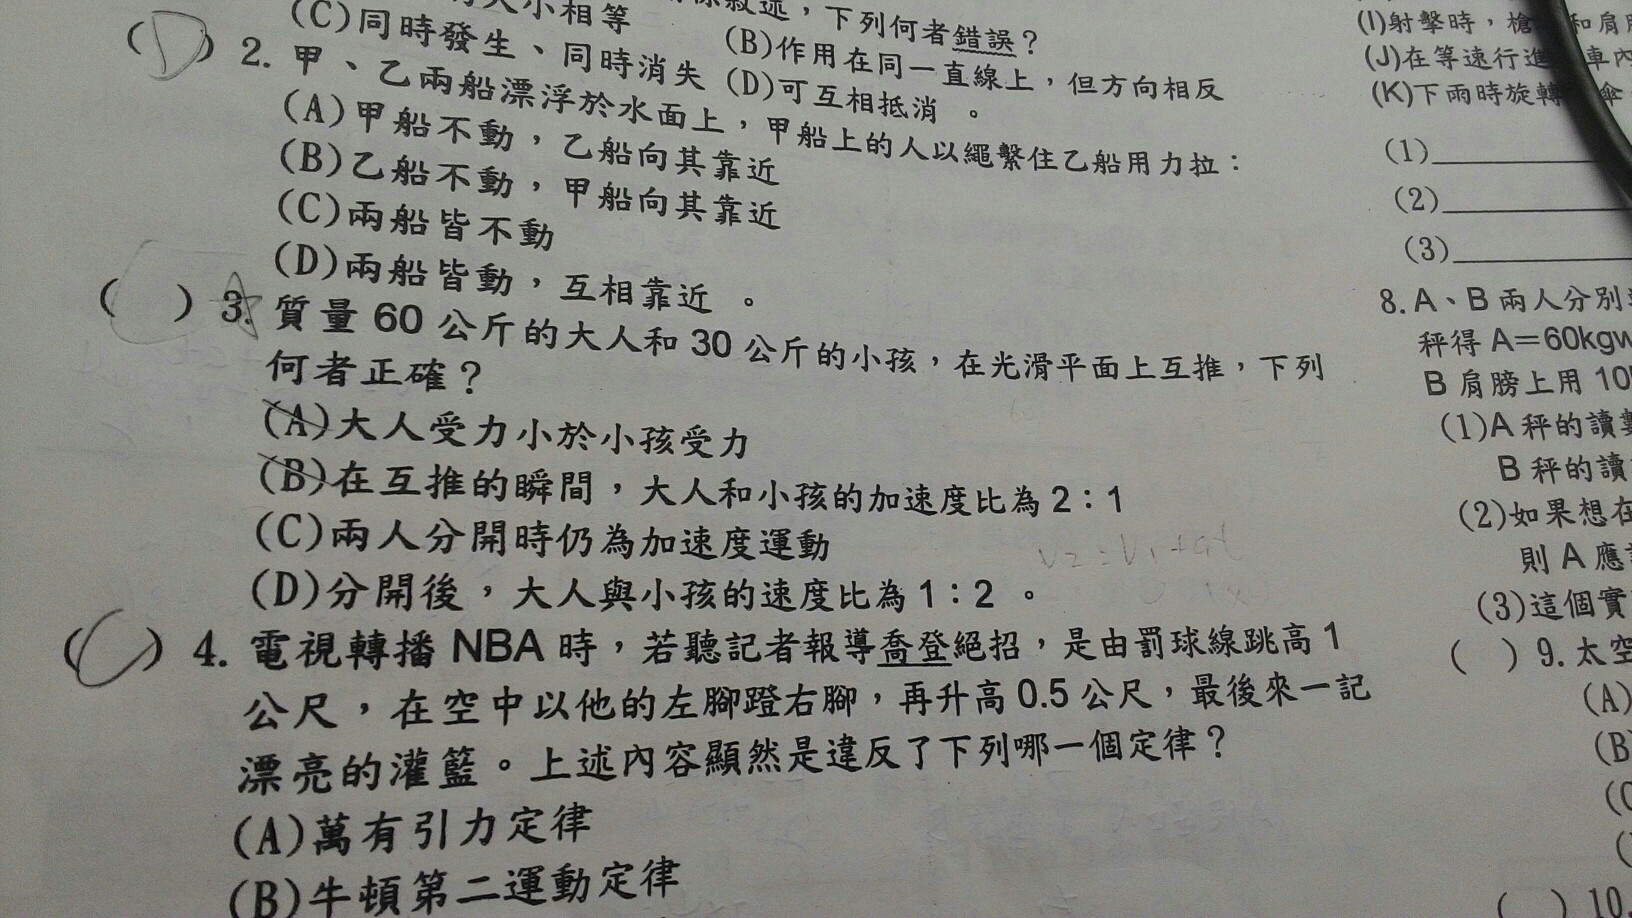 大小相等
敘述，下列何者錯誤？
(B)作用在同一直線上，但方向相反
(C)同時發生、同時消失 (D)可互相抵消。
(D) 2. 甲、乙兩船漂浮於水面上，甲船上的人以繩繫住乙船用力拉：
(A)甲船不動，乙船向其靠近
(B)乙船不動，甲船向其靠近
(C)兩船皆不動
(D)兩船皆動，互相靠近。
( ) 3. 質量 60 公斤的大人和 30 公斤的小孩，在光滑平面上互推，下列
何者正確？
(A)大人受力小於小孩受力
(B)在互推的瞬間，大人和小孩的加速度比為 2：1
(C)兩人分開時仍為加速度運動
V2=V1+at
(D)分開後，大人與小孩的速度比為 1：2 。
(C) 4. 電視轉播 NBA 時，若聽記者報導喬登絕招，是由罰球線跳高 1
公尺，在空中以他的左腳蹬右腳，再升高 0.5 公尺，最後來一記
漂亮的灌籃。上述內容顯然是違反了下列哪一個定律？
(A)萬有引力定律
(B)牛頓第二運動定律
(I)射擊時，槍 和肩
(J)在等速行進 車內
(K)下雨時旋轉 傘
(1)
(2)
(3)
8. A、B 兩人分別
秤得 A＝60kgw
B 肩膀上用 10
(1)A 秤的讀數
B 秤的讀
(2)如果想在
則 A 應
(3)這個實
( ) 9. 太空
(A)
(B
( ) 10.